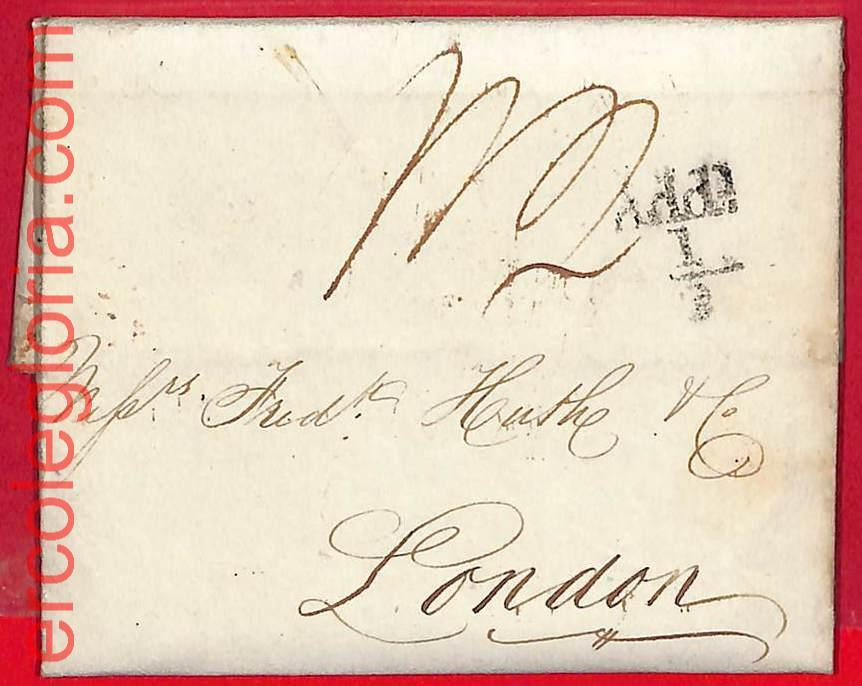 Addl
1
2
Messrs. Fredk. Huth & Co
London
ercolegloria.com